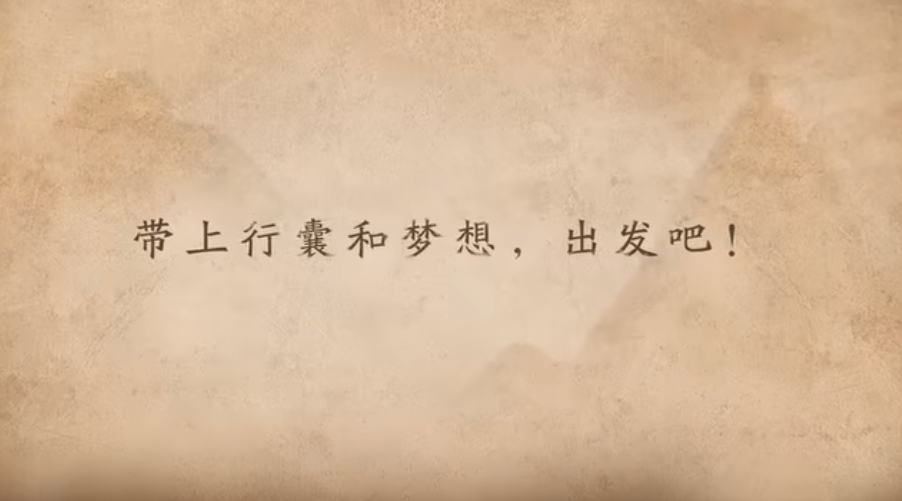 带上行囊和梦想，出发吧！